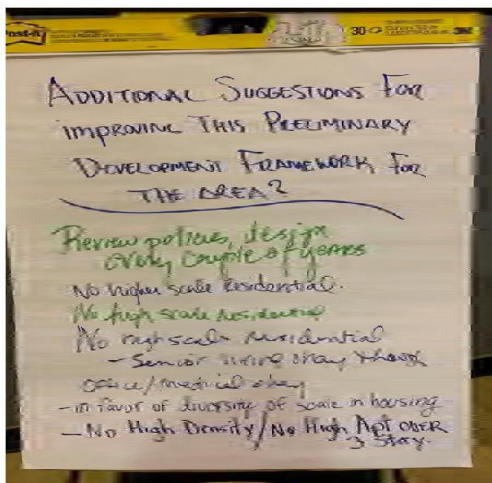 Post-it
30
3M
ADDITIONAL SUGGESTIONS FOR
improving THIS PRELIMINARY
DEVELOPMENT FRAMEWORK FOR
THE AREA?
Review policies, design
every couple of years
No higher scale Residential.
No high scale residential
No high scale residential
- Senior living okay though
office/medical okay
- in favor of diversity of scale in housing
- No High Density/No High Apt OVER
3 Story.